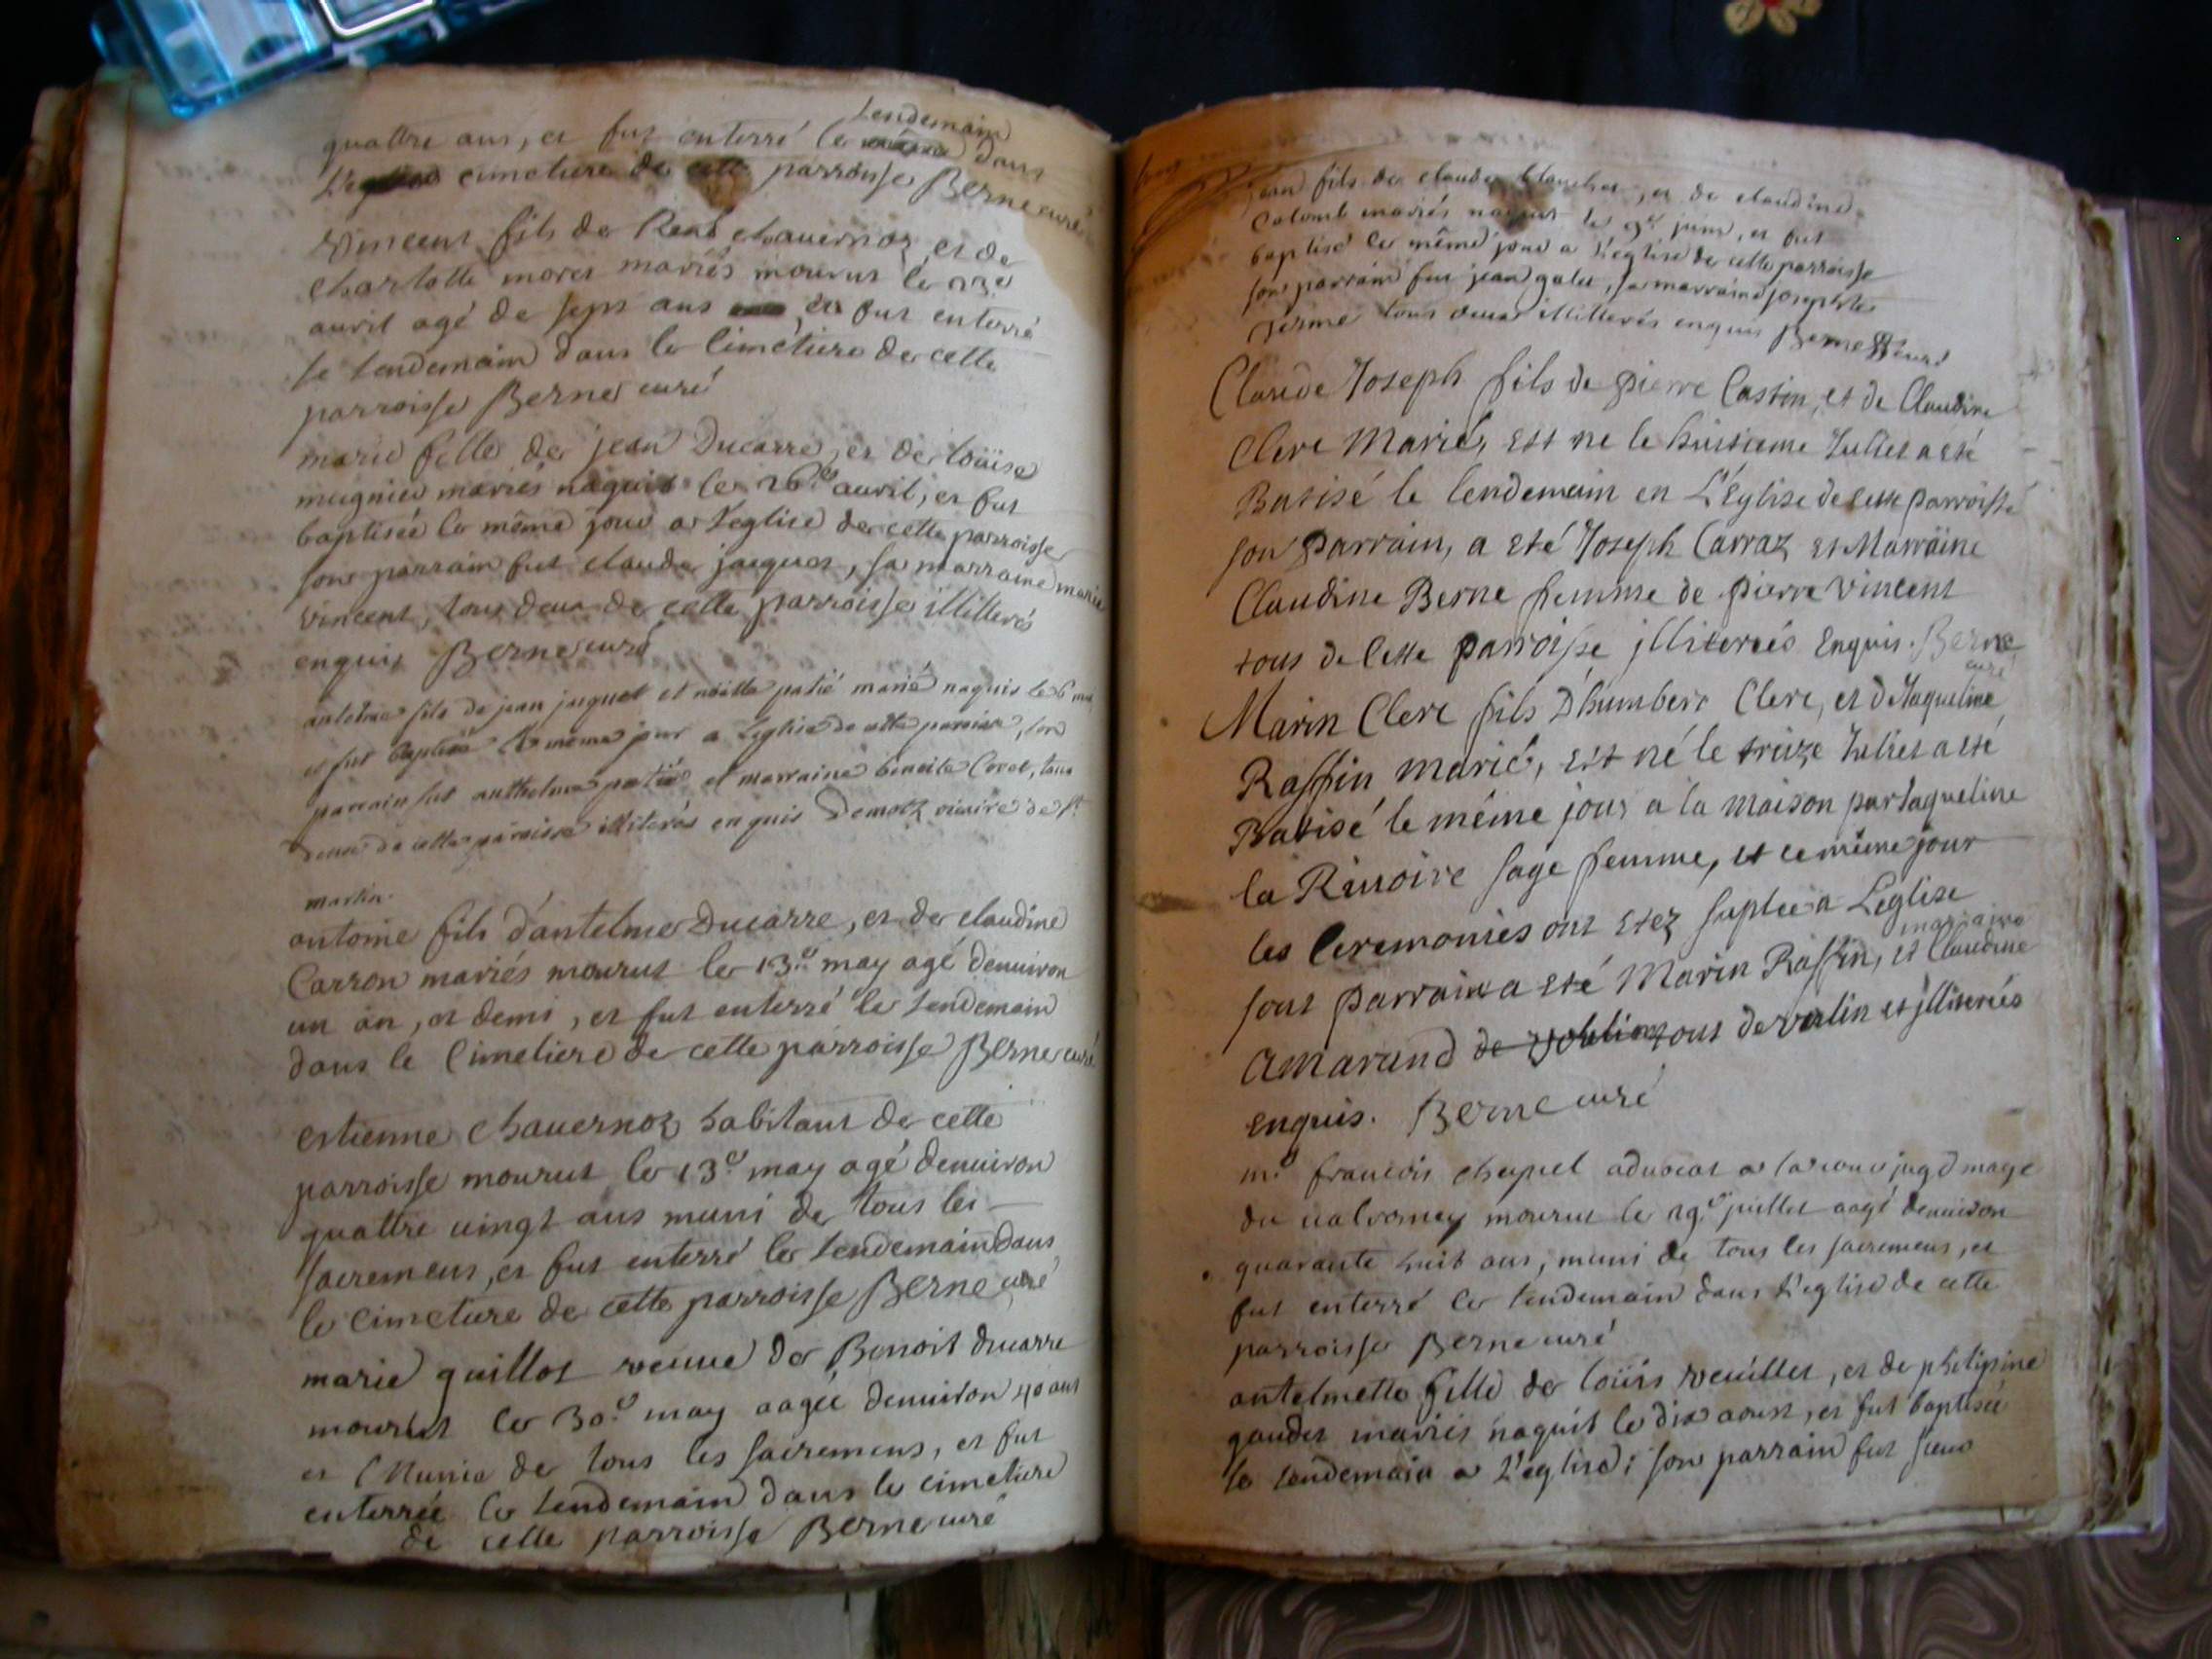 quattre ans, et fut enterré le lendemain dans
cimetiere de cette parroisse Berne curé
Vincent fils de René chauernoz, et de
charlotte moret mariés mourut le 23e
auril agé de sept ans et fut enterré
le lendemain dans le Cimétiere de cette
parroisse Berne curé
marie fille de jean Ducarre, et de loüise
mugnier mariés naquit le 26e auril, et fut
baptisée le même jour a L'eglise de cette parroisse
son parrain fut claude jacquet, sa marraine marie
vincent, tous deux de cette parroisse illitterés
enquis Berne curé
antelme fils de jean jaquet et patié marié naquis le 6 mai
et fut baptisé le meme jour a Leglise de cette paroisse, son
parrain fut anthelme patié et marraine benoite Coret, tous
deux de cette paroisse illiterés enquis Demotz vicaire de st
martin.
antoine fils d'antelme Ducarre, et de claudine
Carron mariés mourut le 13e may agé denuiron
un an, et demi, et fut enterré le lendemain
dans le Cimetiere de cette parroisse Berne curé
estienne chauernoz habitant de cette
parroisse mourut le 13e may agé denuiron
quattre uingt ans muni de tous les
sacremens, et fut enterré le lendemain dans
le cimetiere de cette parroisse Berne curé
marie guillot veuue de Benoit ducarre
mourut le 30e may aagée denuiron 40 ans
et Munie de tous les sacremens, et fut
enterrée le lendemain dans le cimetiere
de cette parroisse Berne curé
jean fils de claude blanchet, et de claudine
Colomb mariés naquit le 9e juin, et fut
baptisé le même jour a L'eglise de cette parroisse
son parrain fut jean galet, sa marraine josephte
tous deux illitterés enquis Berne curé
Claude Joseph fils de pierre Castin, et de Claudine
Clerc Marié, est né le huitieme Juliet a esté
Batisé le lendemain en L'Église de cette parroisse
son parrain, a eté Joseph Carraz et Marraine
Claudine Berne femme de pierre vincent
tous de cette parroisse jlliterées Enquis. Berne
curé
Marin Clerc fils D'humbert Clerc, et de Jaqueline
Raffin marié, est né le treize Juliet a eté
Batisé le même jour a la maison par Jaqueline
la Riuoire sage femme, et ce même jour
les Ceremonies ont etez suplée a L'eglise
marraine
sont parrain a eté Marin Raffin, et Claudine
amarand de tous de et jlliterées
enquis. Berne curé
me francois chapuel aduocat a la cour juge mage
du ualromey mourut le 29e juillet aagé denuiron
quarante huit ans, muni de tous les sacremens, et
fut enterré le lendemain dans L'eglise de cette
parroisse Berne curé
antelmette fille de loüis veuillet, et de philipine
gaudet mariés naquit le dix aoust, et fut baptisée
le lendemain a L'eglise; son parrain fut sieur